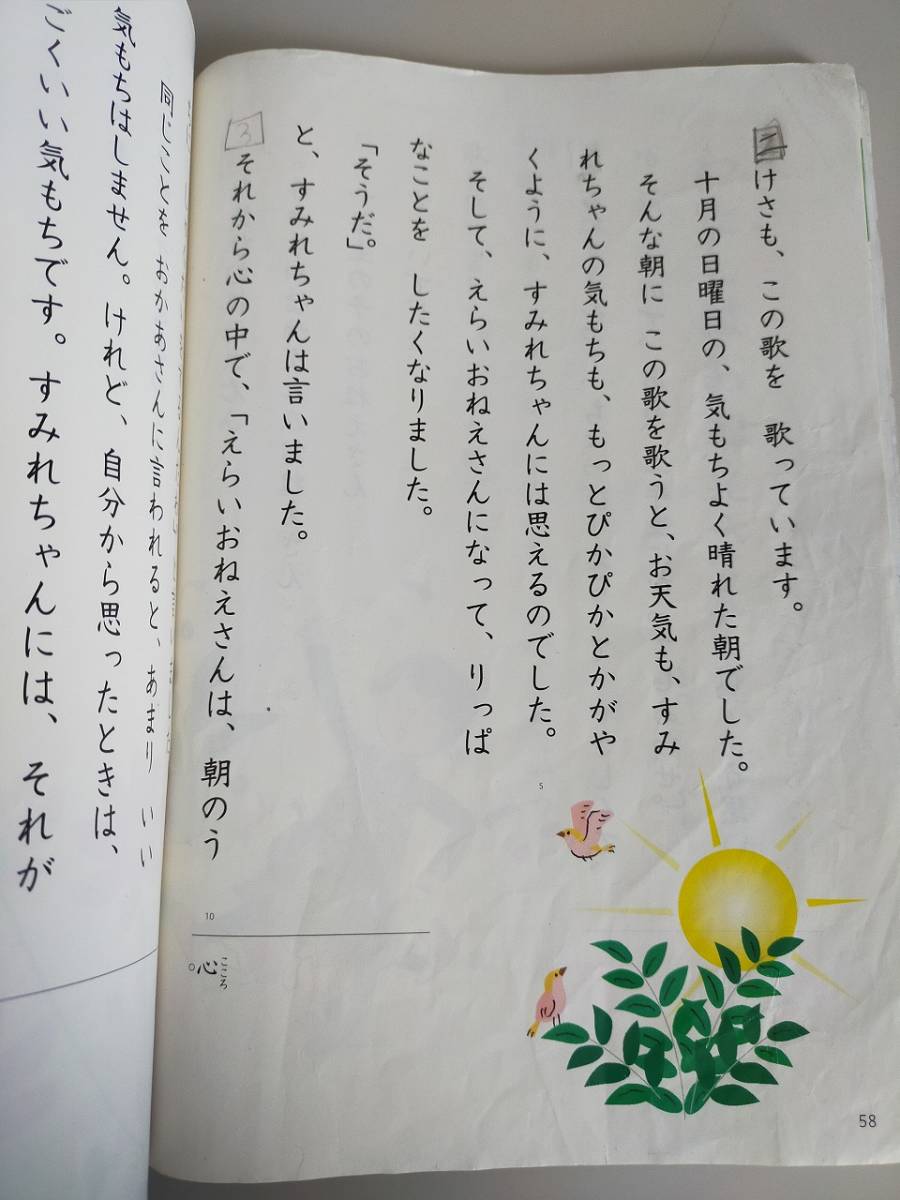 二けさも、この歌を　歌っています。
十月の日曜日の、気もちよく晴れた朝でした。
そんな朝に　この歌を歌うと、お天気も、すみ
れちゃんの気もちも、もっとぴかぴかとかがや
くように、すみれちゃんには思えるのでした。
そして、えらいおねえさんになって、りっぱ
なことを　したくなりました。
「そうだ。」
と、すみれちゃんは言いました。
3それから心の中で、「えらいおねえさんは、朝のう
5
10
心
こころ
。
58
同じことを　おかあさんに言われると、あまり　いい
気もちはしません。けれど、自分から思ったときは、
ごくいい気もちです。すみれちゃんには、それが